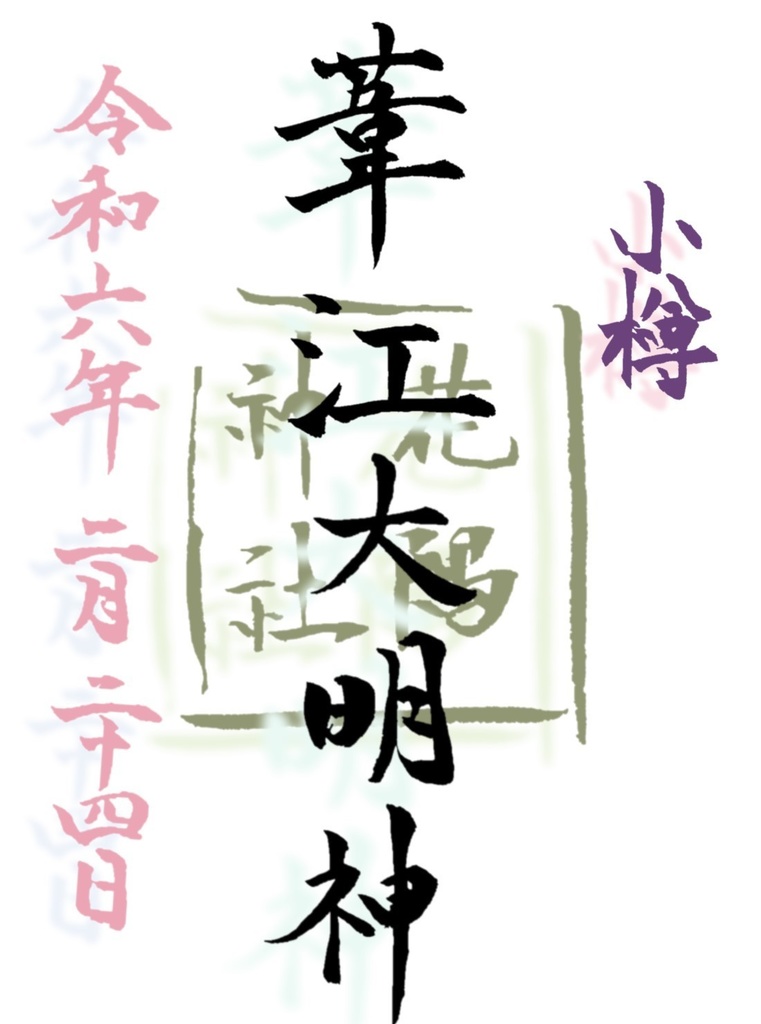 小樽
葦江大明神
神社
令和六年 二月 二十四日